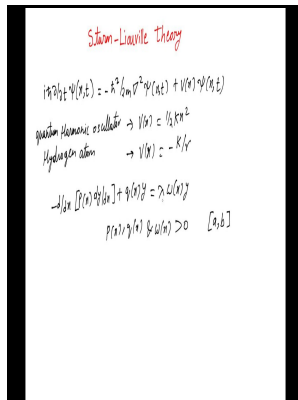 Sturm-Liouville Theory
iħ∂/∂t Ψ(x,t) = -ħ²/2m ∇²Ψ(x,t) + V(x)Ψ(x,t)
Quantum Harmonic oscillator → V(x) = 1/2 kx²
Hydrogen atom → V(x) = -k/r
-d/dx [P(x) dy/dx] + q(x)y = λ w(x)y
P(x), q(x) & w(x) > 0 [a,b]